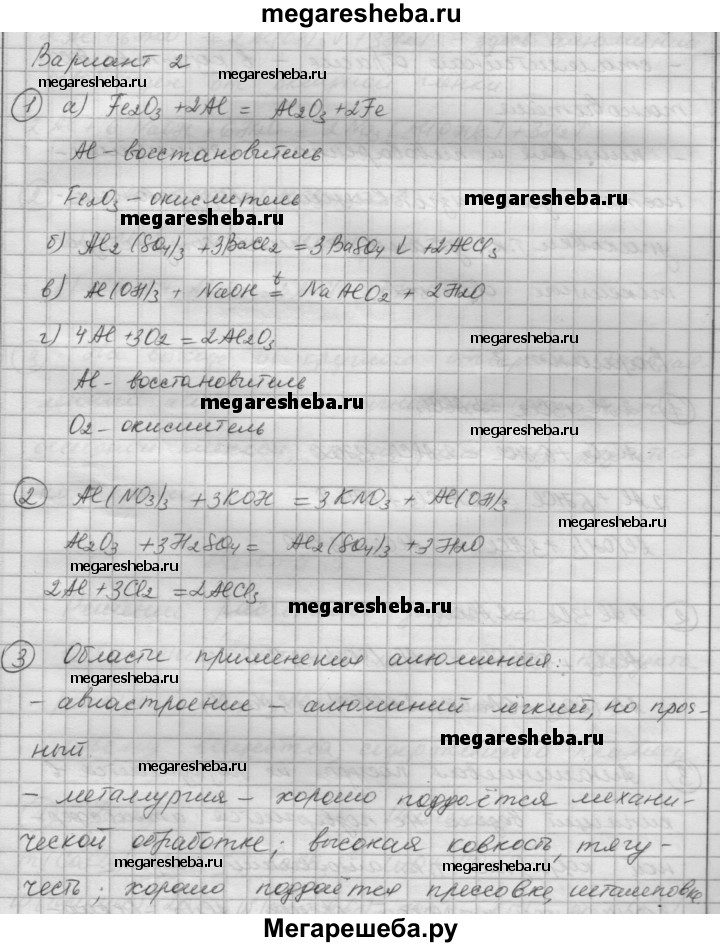 megaresheba.ru
Вариант 2
megaresheba.ru megaresheba.ru
1 а) Fe2O3 + 2Al = Al2O3 + 2Fe
Al - восстановитель
Fe2O3 - окислитель megaresheba.ru
megaresheba.ru
б) Al2(SO4)3 + 3BaCl2 = 3BaSO4 ↓ + 2AlCl3
в) Al(OH)3 + NaOH =t NaAlO2 + 2H2O
г) 4Al + 3O2 = 2Al2O3 megaresheba.ru
Al - восстановитель
megaresheba.ru
O2 - окислитель megaresheba.ru
2 Al(NO3)3 + 3KOH = 3KNO3 + Al(OH)3
megaresheba.ru
Al2O3 + 3H2SO4 = Al2(SO4)3 + 3H2O
megaresheba.ru
2Al + 3Cl2 = 2AlCl3 megaresheba.ru
megaresheba.ru
3 Области применения алюминия:
megaresheba.ru megaresheba.ru
- авиастроение - алюминий легкий, но проч-
megaresheba.ru
ный.
megaresheba.ru
- металлургия - хорошо поддаётся механи-
ческой обработке; высокая ковкость, тягу-
megaresheba.ru megaresheba.ru
честь; хорошо поддаётся прессовке, штамповке
Мегарешеба.ру